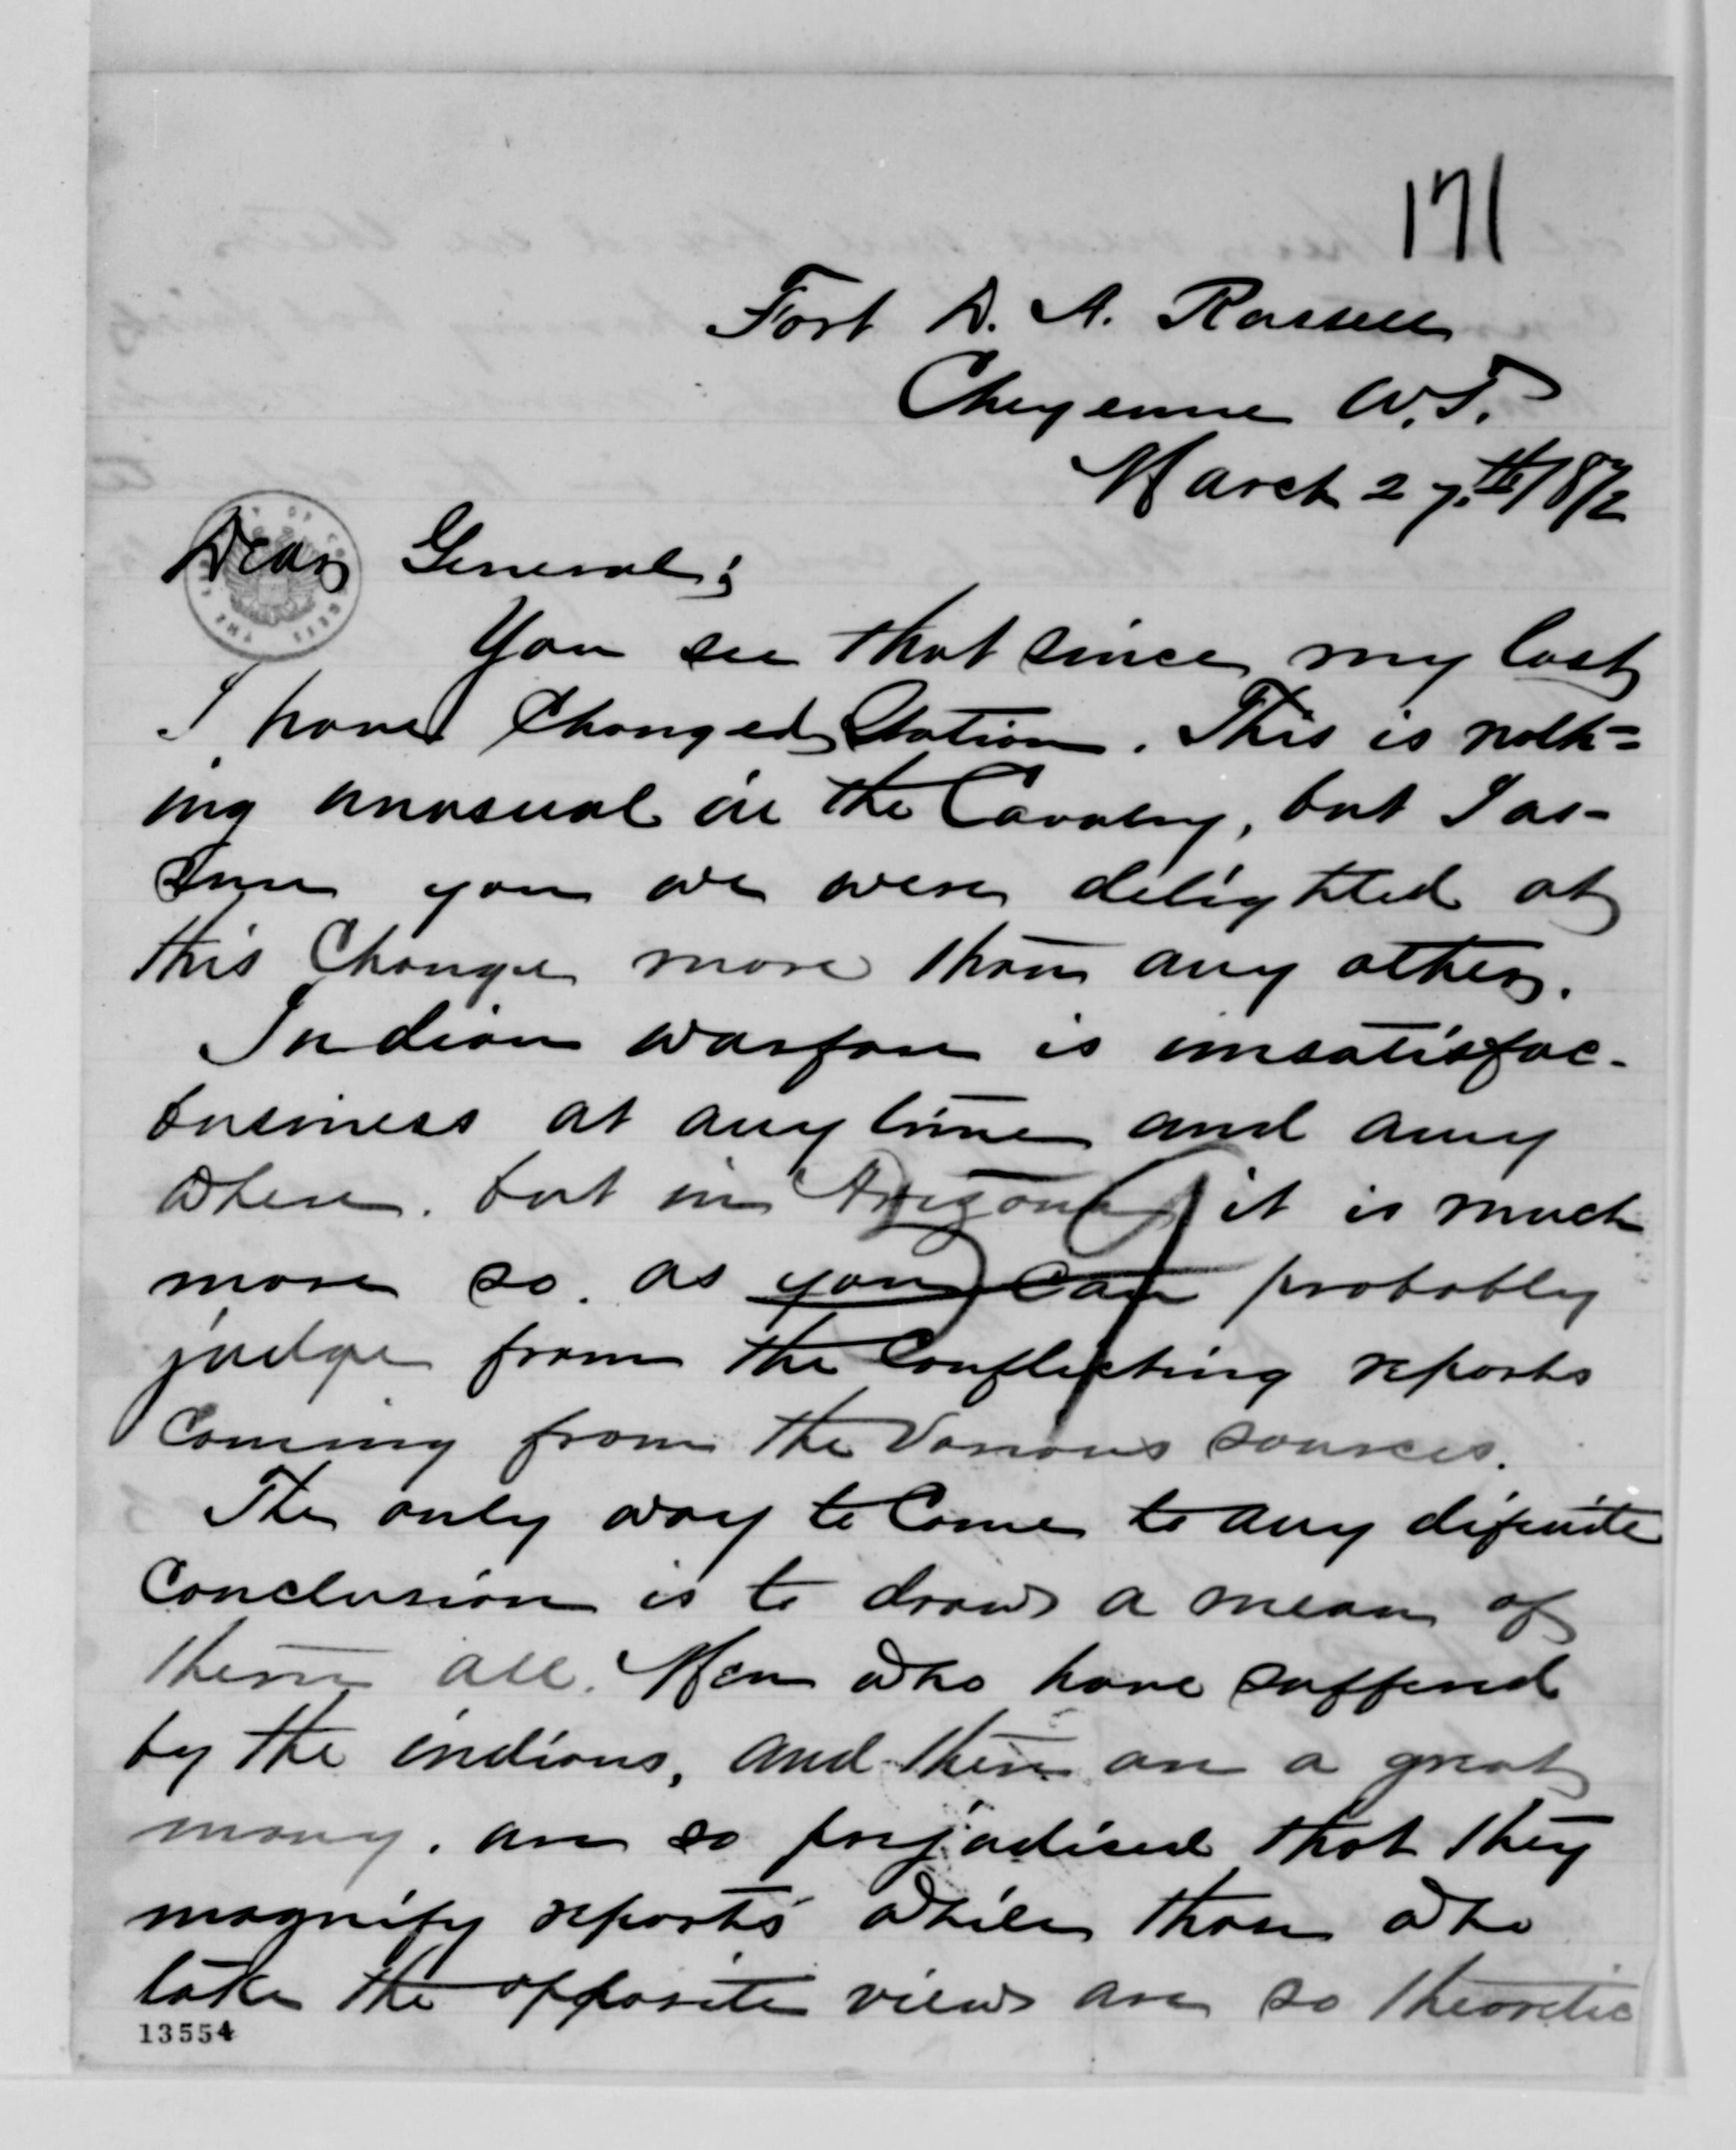 171
Fort D. A. Russell
Cheyenne W.T.
March 27th/872
Dear General;
You see that since my last
I have changed Station. This is noth=
ing unusual in the Cavalry, but I as-
sure you we were delighted at
this Change more than any other.
Indian warfare is unsatisfac-
business at any time and any
where. but in Arizona it is much
more so. as you can probably
judge from the Conflicting reports
Coming from the various sources.
The only way to Come to any difinite
Conclusion is to draw a mean of
them all. Men who have suffered
by the indians, and there are a great
many. are so prejudised that they
magnify reports while those who
take the opposite view are so theoretic
13554